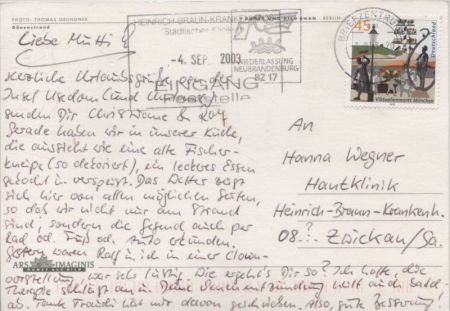 PHOTO: THOMAS GRUNDNER
Dünenstrand
BERLIN
HEINRICH-BRAUN-KRANKENHAUS
Städtisches Klinikum
-4. SEP. 2003
EINGANG
Poststelle
NIEDERLASSUNG
NEUBRANDENBURG
BZ 17
BRIEFZENTRUM
45
Deutschland
Viktualienmarkt München
Liebe Mutti!
Herzliche Urlaubsgrüße von der
Insel Usedom (und
senden Dir Christiane &
Gerade haben wir in unserer Küche,
die aussieht wie eine alte Fischer-
kneipe (so dekoriert), ein leckeres Essen
gekocht u. verspeist. Das Wetter zeigt
sich hier von allen möglichen Seiten,
so daß wir nicht nur am Strand
sind, sondern die Gegend auch per
Rad od. Fuß od. Auto erkunden.
Gestern waren Ralf u. ich in einer Clown-
vorstellung, war sehr lustig. Wie ergeht's Dir so? Ich hoffe, die
Therapie schlägt an u. Deine entzündung heilt auch bald
ab. Tante Traudi hat mir davon geschrieben. Also, gute Besserung!
An
Hanna Wegner
Hautklinik
Heinrich-Braun-Krankenh.
08? Zwickau/Sa.
ARS IMAGINIS